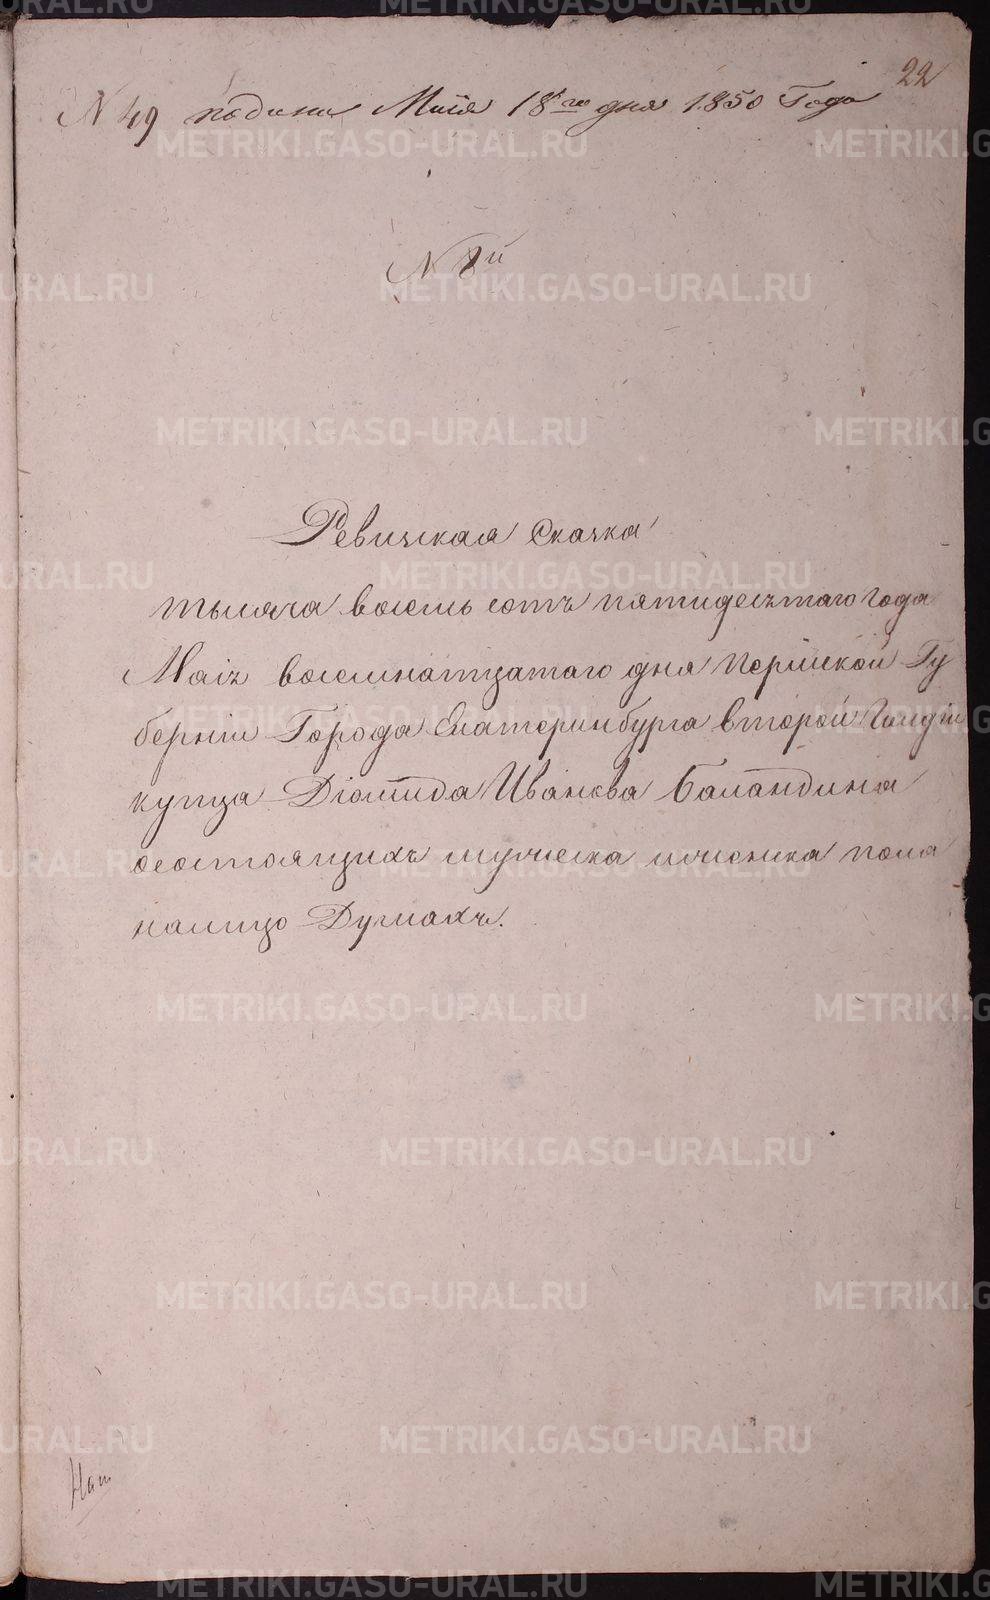 22
N 49 подана Маія 18го дня 1850 Года
N 8й
Ревизская Сказка
тысяча восемь сотъ пятидесятаго года
Маія восемнатцатаго дня Пермской Гу
берніи Города Екатеринбурга второй Гилдіи
купца Діомида Иванова Баландина
состоящихъ мужеска и женска пола
налицо Душахъ.
METRIKI.GASO-URAL.RU